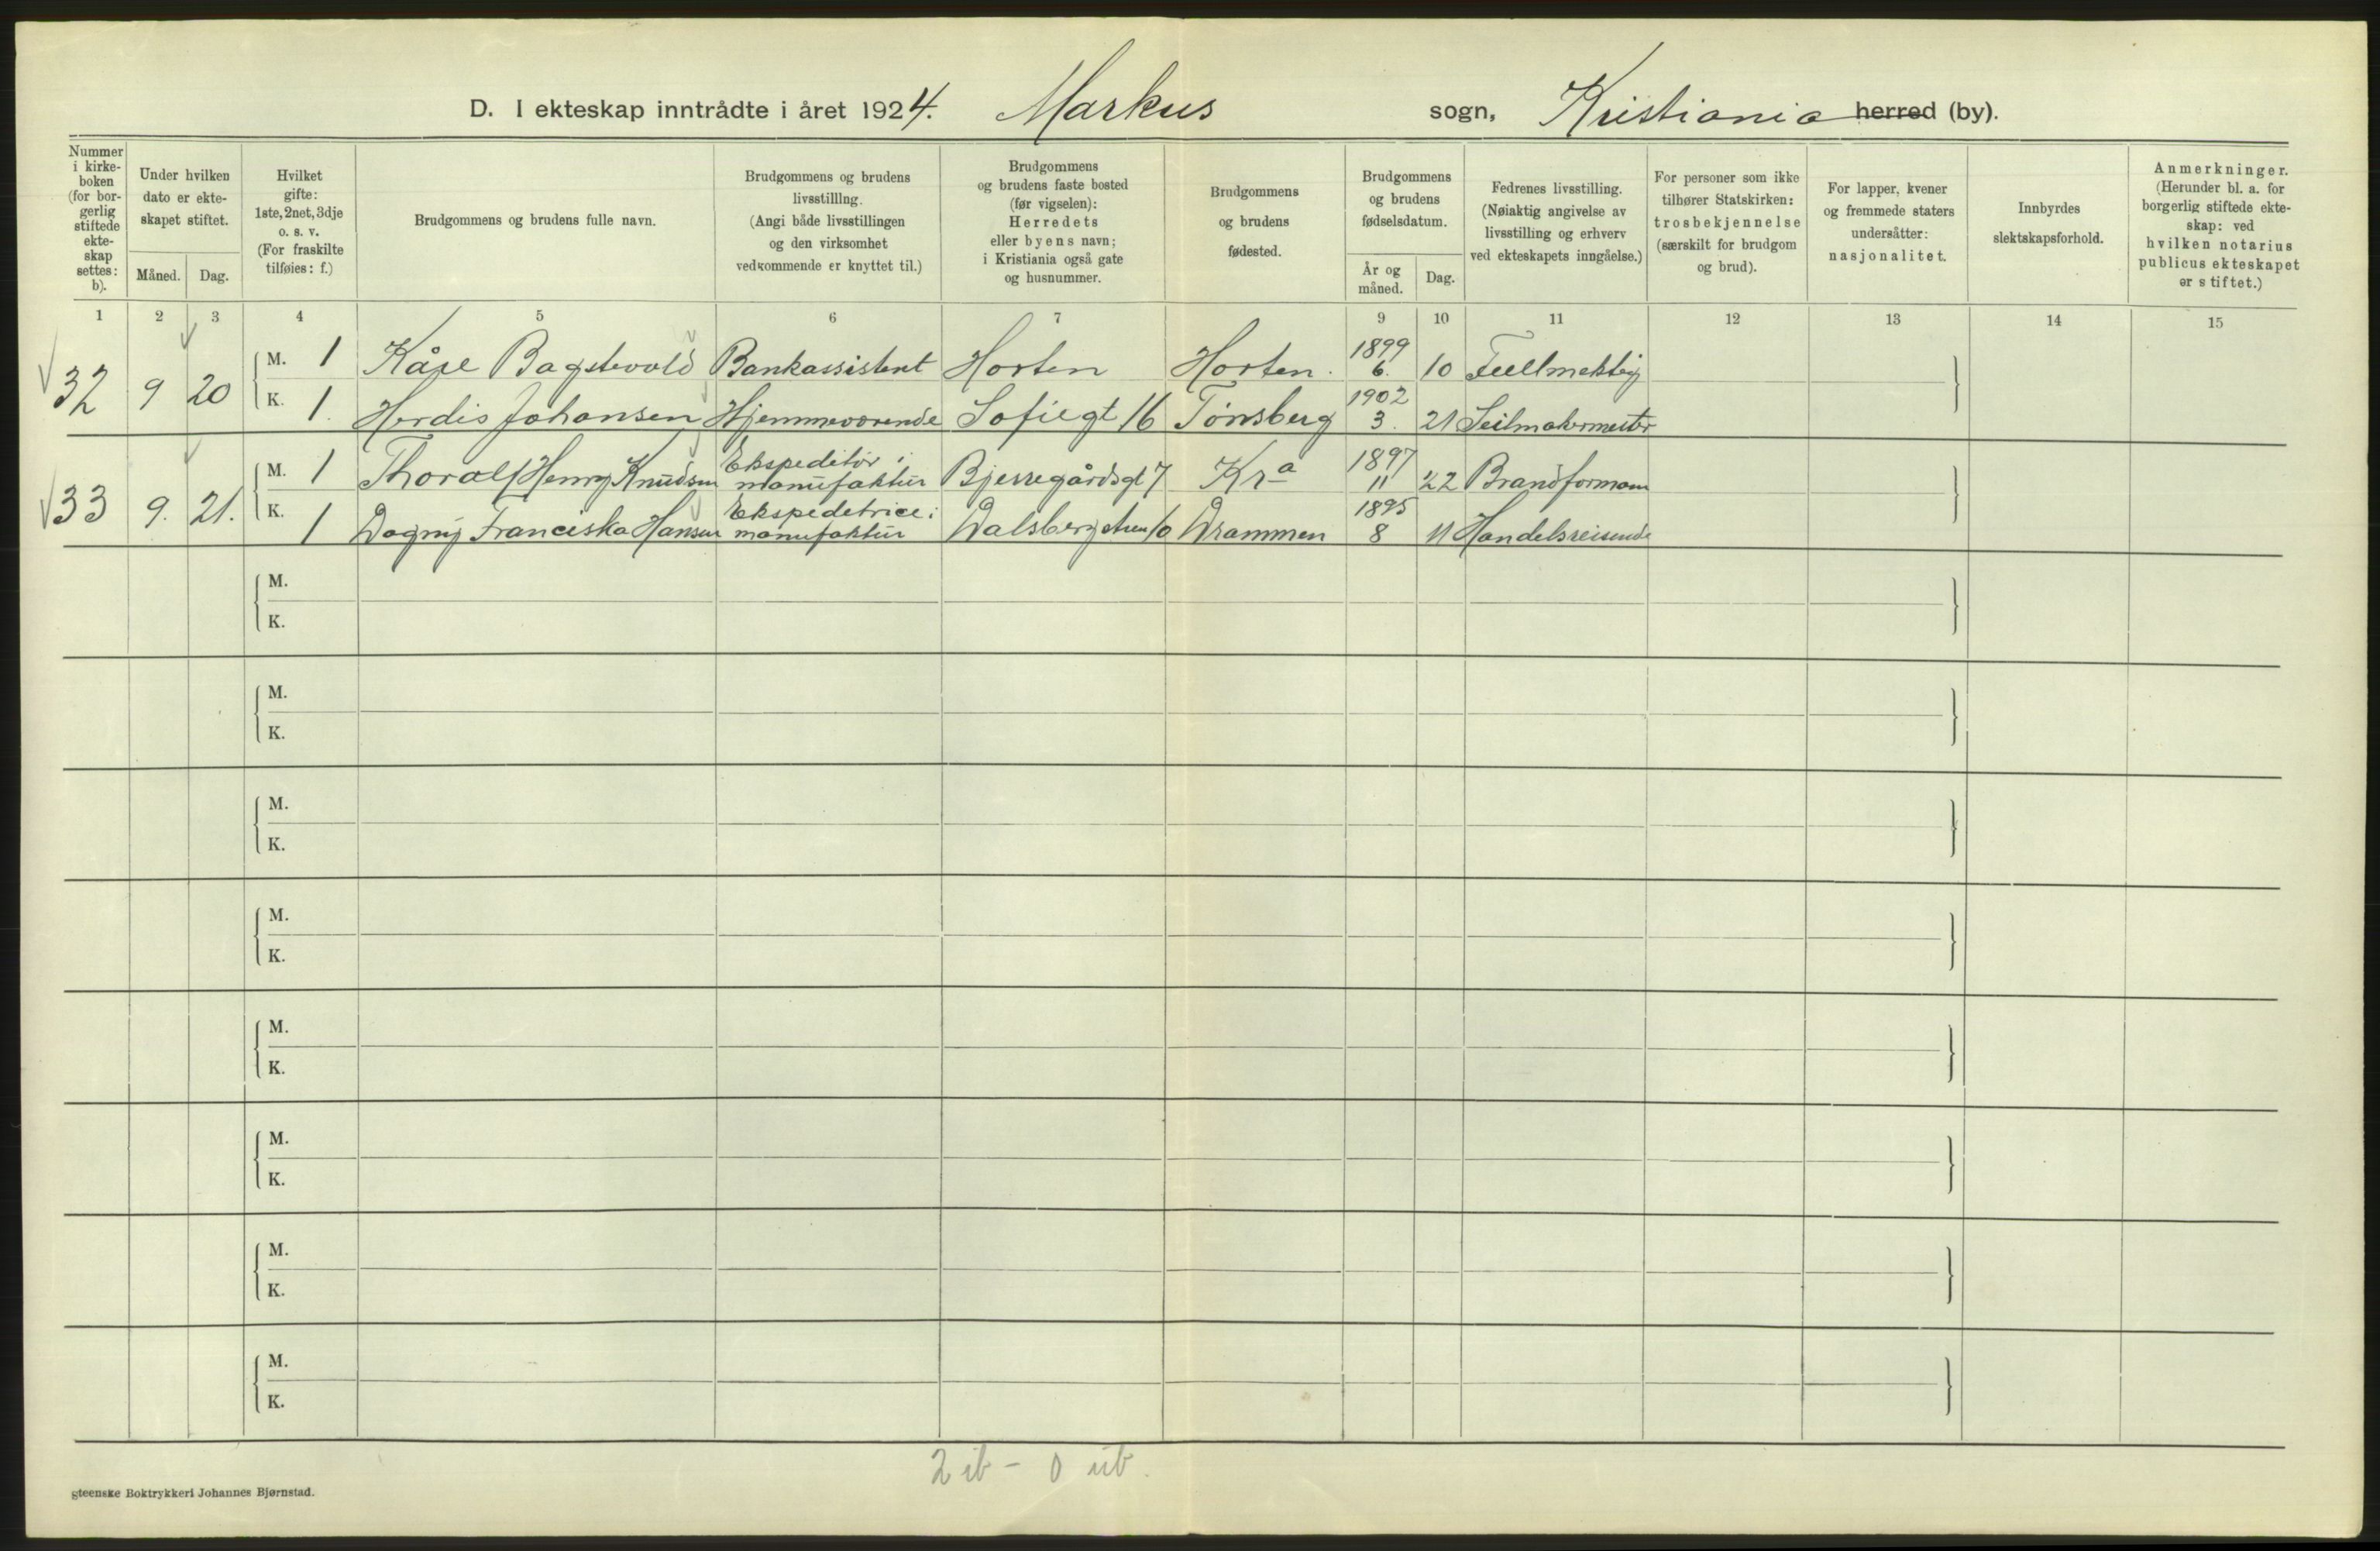 D. I ekteskap inntrådte i året 1924. Markus sogn, Kristiania herred (by).
Nummer i kirke-boken (for bor-gerlig stiftede ekte-skap settes: b).
Under hvilken dato er ekte-skapet stiftet.
Måned. Dag.
Hvilket gifte: 1ste, 2net, 3dje o. s. v. (For fraskilte tilføies: f.)
Brudgommens og brudens fulle navn.
Brudgommens og brudens livsstilllng. (Angi både livsstillingen og den virksomhet vedkommende er knyttet til.)
Brudgommens og brudens faste bosted (før vigselen): Herredets eller byens navn; i Kristiania også gate og husnummer.
Brudgommens og brudens fødested.
Brudgommens og brudens fødselsdatum.
År og måned. Dag.
Fedrenes livsstilling. (Nøiaktig angivelse av livsstilling og erhverv ved ekteskapets inngåelse.)
For personer som ikke tilhører Statskirken: trosbekjennelse (særskilt for brudgom og brud).
For lapper, kvener og fremmede staters undersåtter: nasjonalitet.
Innbyrdes slektskapsforhold.
Anmerkninger. (Herunder bl. a. for borgerlig stiftede ekte-skap: ved hvilken notarius publicus ekteskapet er stiftet.)
1 2 3 4 5 6 7 9 10 11 12 13 14 15
32 9 20
M. 1 Kåre Bagstevold Bankassistent Horten Horten. 1899 6. 10 Fullmektig
K. 1. Herdis Johansen Hjemmeværende Sofiegt 16 Tønsberg 1902 3. 21 Seilmakermester
33 9. 21.
M. 1 Thoralf Henry Knudsen Ekspeditør i manufaktur Bjerregårdsgt 7 Kra 1897 11 22 Brandformann
K. 1 Dagny Franciska Hansen Ekspeditrice i manufaktur Walsbergstien 10 Drammen 1895 8 11 Handelsreisende
M.
K.
M.
K.
M.
K.
M.
K.
M.
K.
M.
K.
M.
K.
M.
K.
2 ib - 0 ub.
gteenske Boktrykkeri Johannes Bjørnstad.